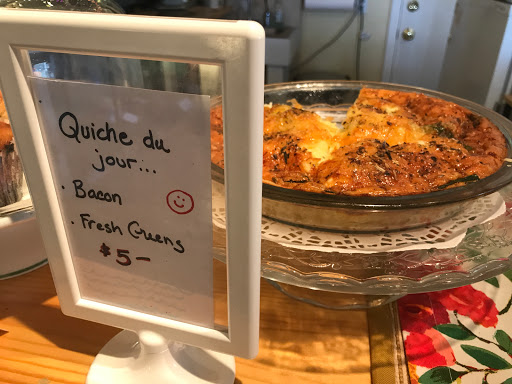 Quiche du
jour...
· Bacon
· Fresh Greens
$5–